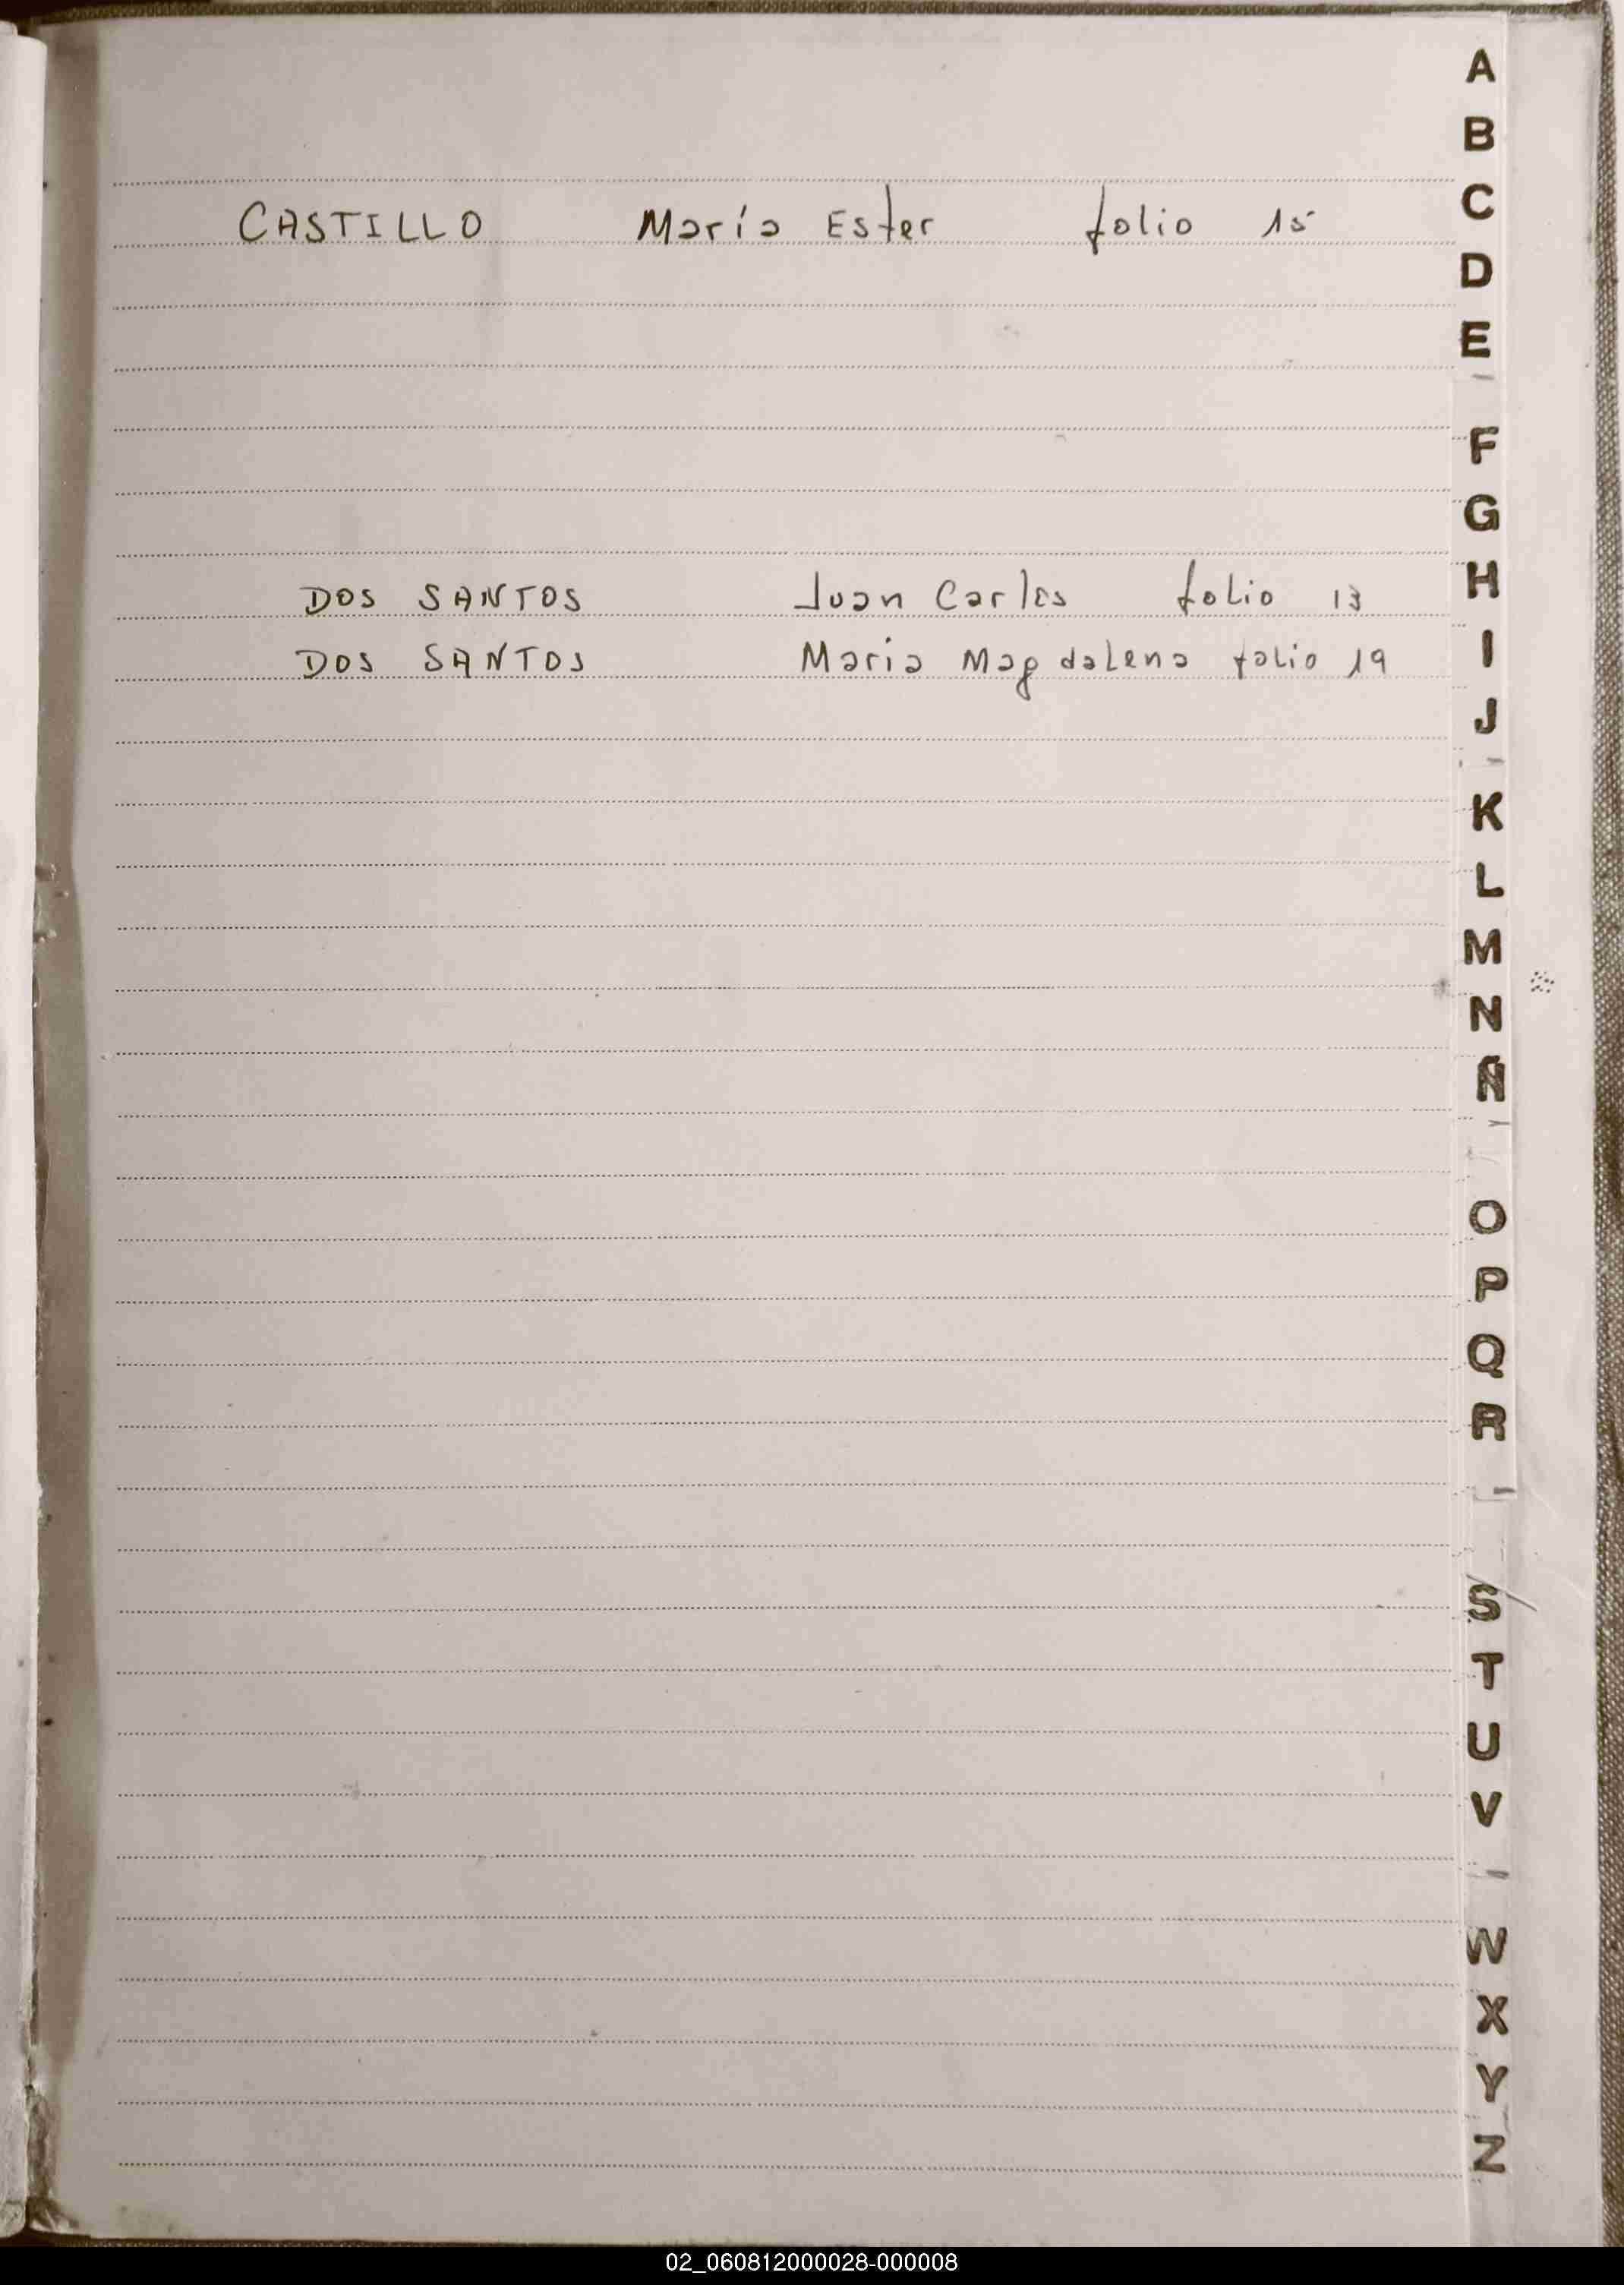 A
B
CASTILLO María Ester folio 15
C
D
E
F
G
DOS SANTOS Juan Carlos folio 13
H
DOS SANTOS Maria Magdalena folio 19
I
J
K
L
M
N
Ñ
O
P
Q
R
S
T
U
V
W
X
Y
Z
02_060812000028-000008